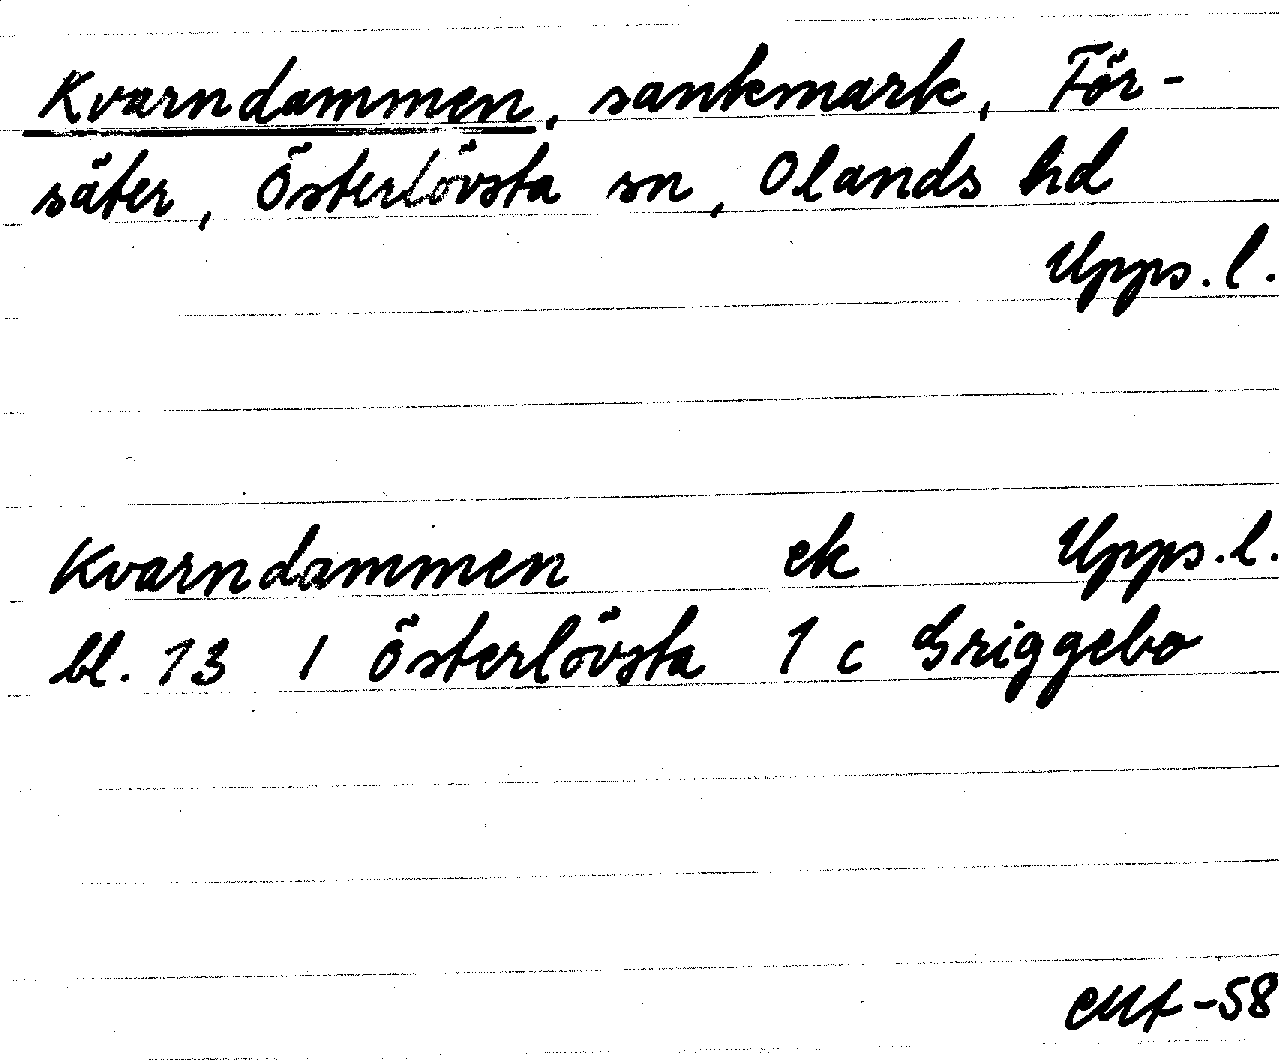 Kvarndammen, sankmark, För-
säter, Österlövsta sn, Olands hd
Upps. l.
Kvarndammen ek Upps. l.
bl. 13 I Österlövsta 1 c Griggebo
-58